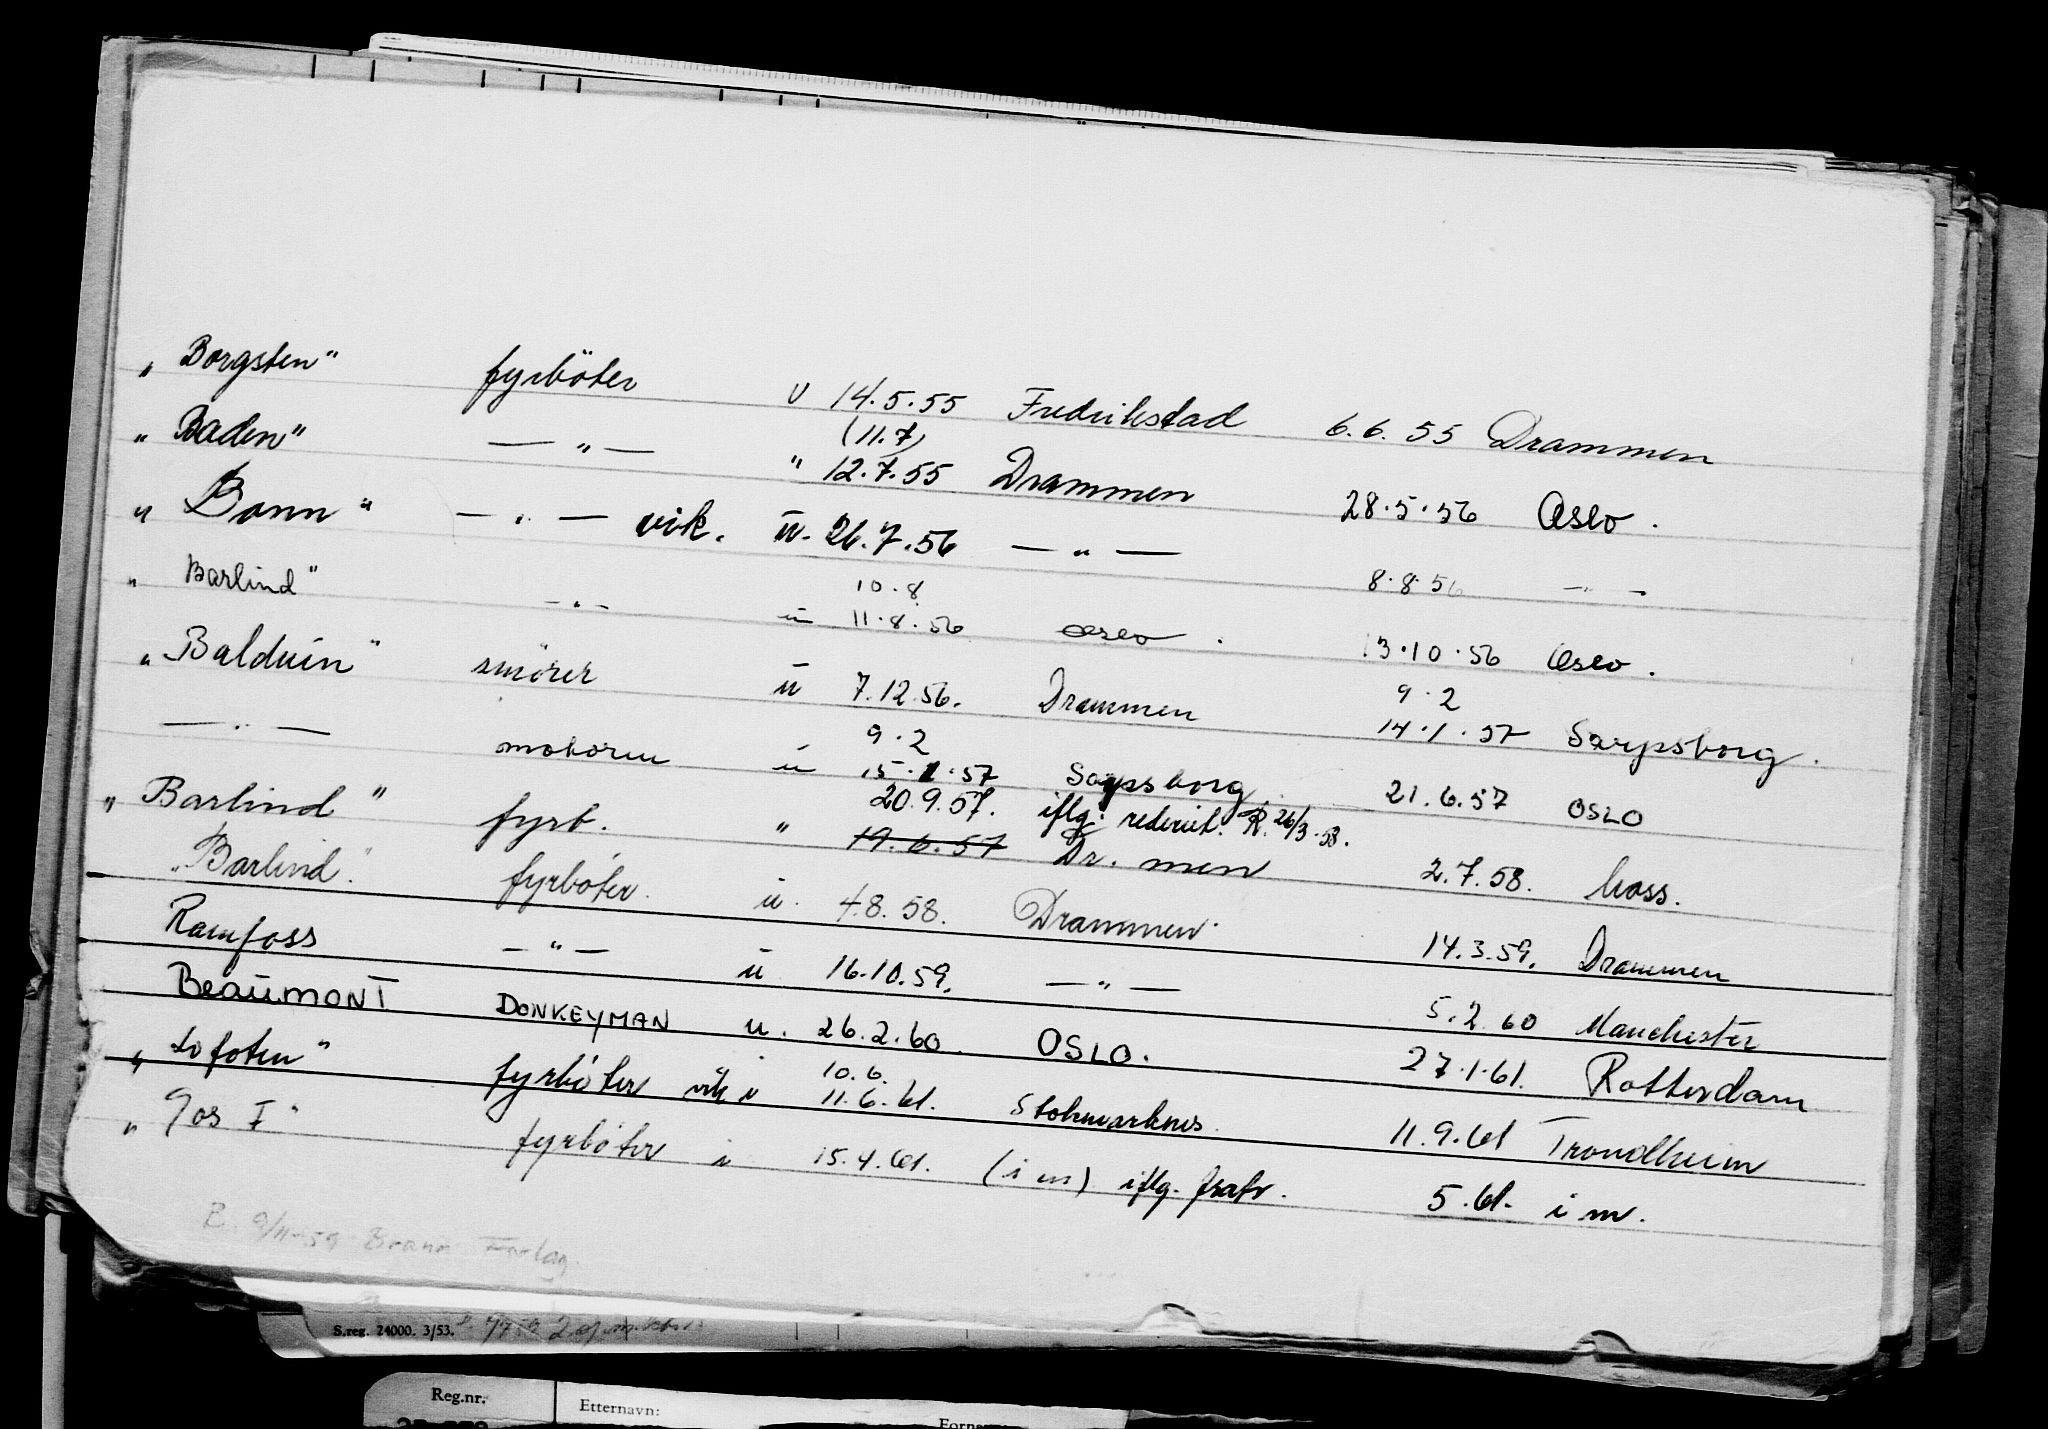 „Borgsten" fyrböter u 14.5.55 Fredrikstad 6.6.55 Drammen
(11.7)
„Baden" — „ — " 12.7.55 Drammen 28.5.56 Oslo.
„Bonn" — „ — vik. u. 26.7.56 — „ — 8.8.56 — „ —
10.8
„Barlind" — „ — u 11.8.56 Oslo. 13.10.56 Oslo.
9.2
„Balduin" smörer u 7.12.56. Drammen 14.1.57 Sarpsborg.
9.2
— „ — motorm u 15.1.57 Sarpsborg 21.6.57 OSLO
20.9.57. iflg. rederiet. R. 26/3-58.
„Barlind" fyrb. " 19.6.57 Dr.men 2.7.58. Moss.
„Barlind". fyrböter. u. 4.8.58. Drammen. 14.3.59. Drammen
Ramfoss — „ — u 16.10.59. — „ — 5.2.60 Manchester
BeaumonT DONKEYMAN u. 26.2.60. OSLO. 27.1.61. Rotterdam
10.6.
„Lofoten" fyrböter vik u 11.6.61. Stokmarknes. 11.9.61 Trondheim
„Gos I" fyrböter u 15.4.61. (i m) iflg. frafr. 5.61. i m.
9/11-59 Forlag
S.reg. 24000. 3/53.
Reg.nr. Etternavn: